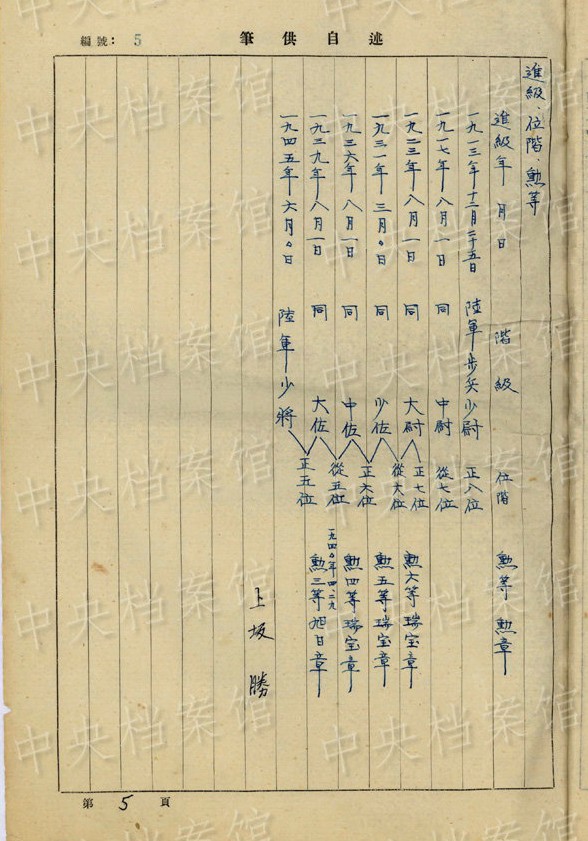 編號：5
述自供筆
進級、位階、勲等
進級年月日　階級　位階　勲等　勲章
一九一三年十二月二十五日　陸軍歩兵少尉　正八位
一九一七年八月一日　同　中尉　從七位
一九二三年八月一日　同　大尉　正七位　從六位　勲六等瑞宝章
一九三一年三月〃日　同　少佐　正六位　勲五等瑞宝章
一九三六年八月一日　同　中佐　從五位　勲四等瑞宝章
一九三九年八月一日　同　大佐　正五位　一九四〇年四、二九　勲三等旭日章
一九四五年六月〃日　陸軍少将
上坂勝
第5頁
中央档案馆